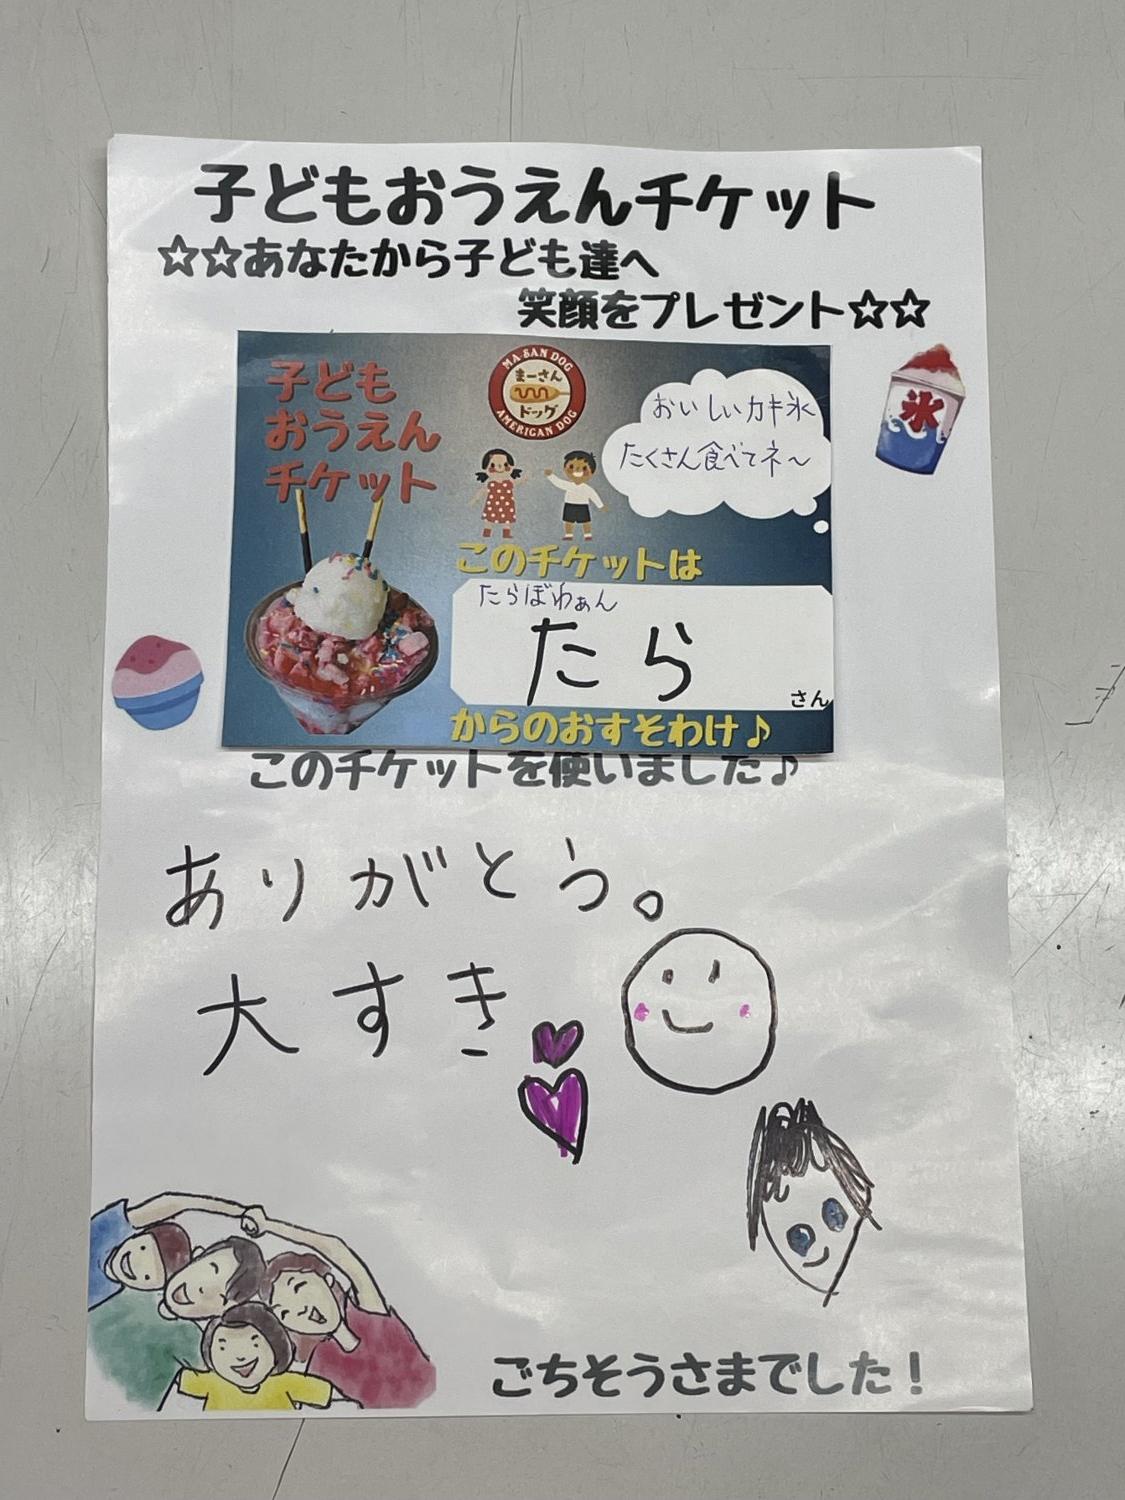 子どもおうえんチケット
☆☆あなたから子ども達へ
笑顔をプレゼント☆☆
子ども
おうえん
チケット
MA-SAN DOG
まーさん
ドッグ
AMERIGAN DOG
おいしいカキ氷
たくさん食べてネ～
氷
このチケットは
たらぼわぁん
たら
さん
からのおすそわけ♪
このチケットを使いました♪
ありがとう。
大すき
ごちそうさまでした！